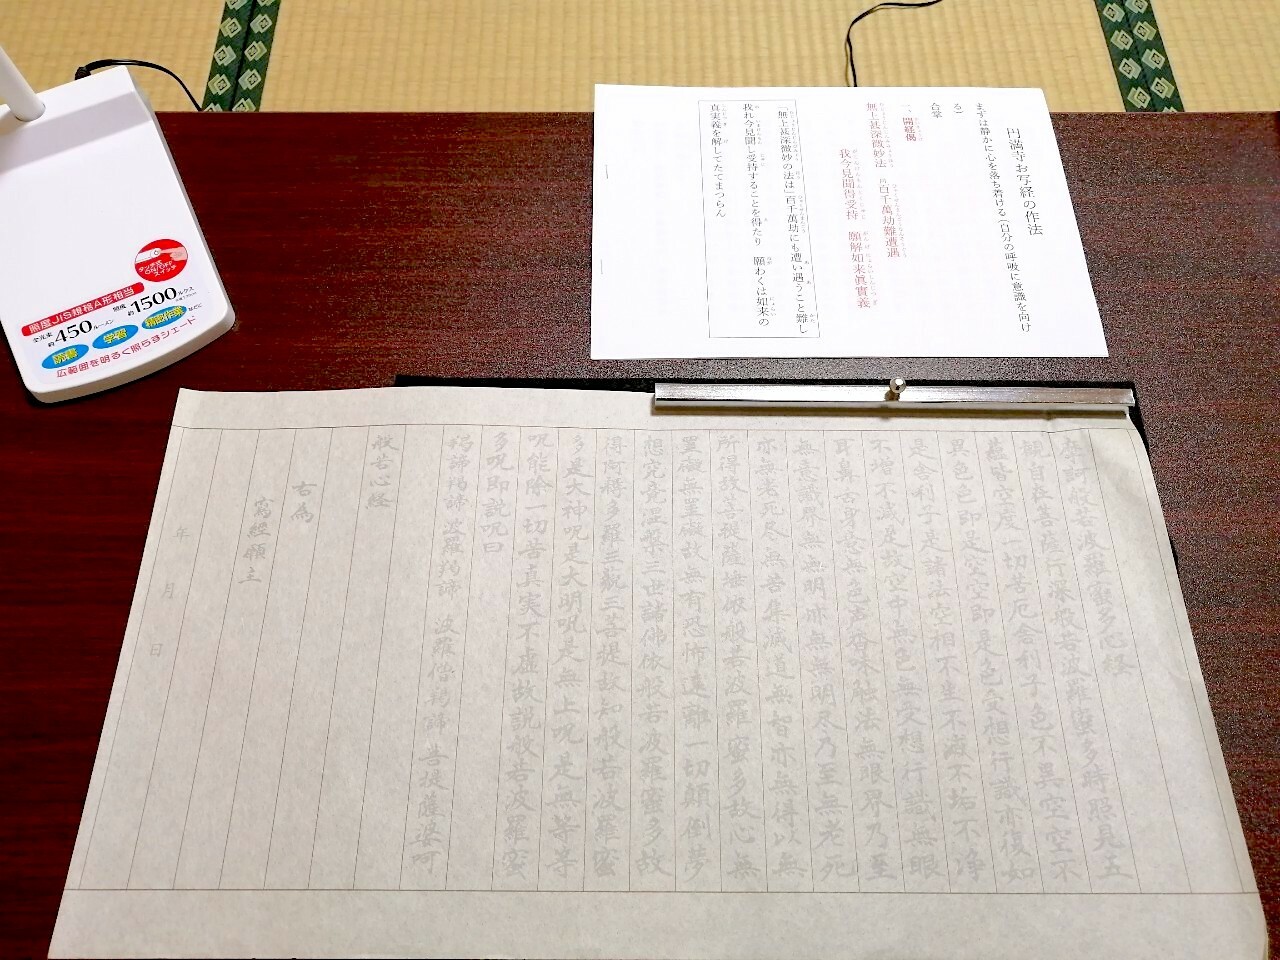 円満寺お写経の作法
まずは静かに心を落ち着ける(自分の呼吸に意識を向ける)
合掌
一、開経偈
無上甚深微妙法 百千萬劫難遭遇
我今見聞得受持 願解如来眞實義
「無上甚深微妙の法は」百千萬劫にも遭い遇うこと難し
我れ今見聞し受持することを得たり 願わくは如来の
真実義を解してたてまつらん
タッチ式
ON/OFF
スイッチ
照度JIS規格A形相当
全光束
約450ルーメン
照度
約1500ルクス
読書
学習
精密作業
などに
広範囲を明るく照らすシェード
摩訶般若波羅蜜多心経
観自在菩薩行深般若波羅蜜多時照見五
蘊皆空度一切苦厄舎利子色不異空空不
異色色即是空空即是色受想行識亦復如
是舎利子是諸法空相不生不滅不垢不浄
不増不減是故空中無色無受想行識無眼
耳鼻舌身意無色声香味触法無眼界乃至
無意識界無無明亦無無明尽乃至無老死
亦無老死尽無苦集滅道無智亦無得以無
所得故菩提薩埵依般若波羅蜜多故心無
罣礙無罣礙故無有恐怖遠離一切顛倒夢
想究竟涅槃三世諸佛依般若波羅蜜多故
得阿耨多羅三藐三菩提故知般若波羅蜜
多是大神呪是大明呪是無上呪是無等等
呪能除一切苦真実不虚故説般若波羅蜜
多呪即説呪曰
羯諦羯諦 波羅羯諦 波羅僧羯諦 菩提薩婆呵
般若心経
右為
写経願主
年 月 日